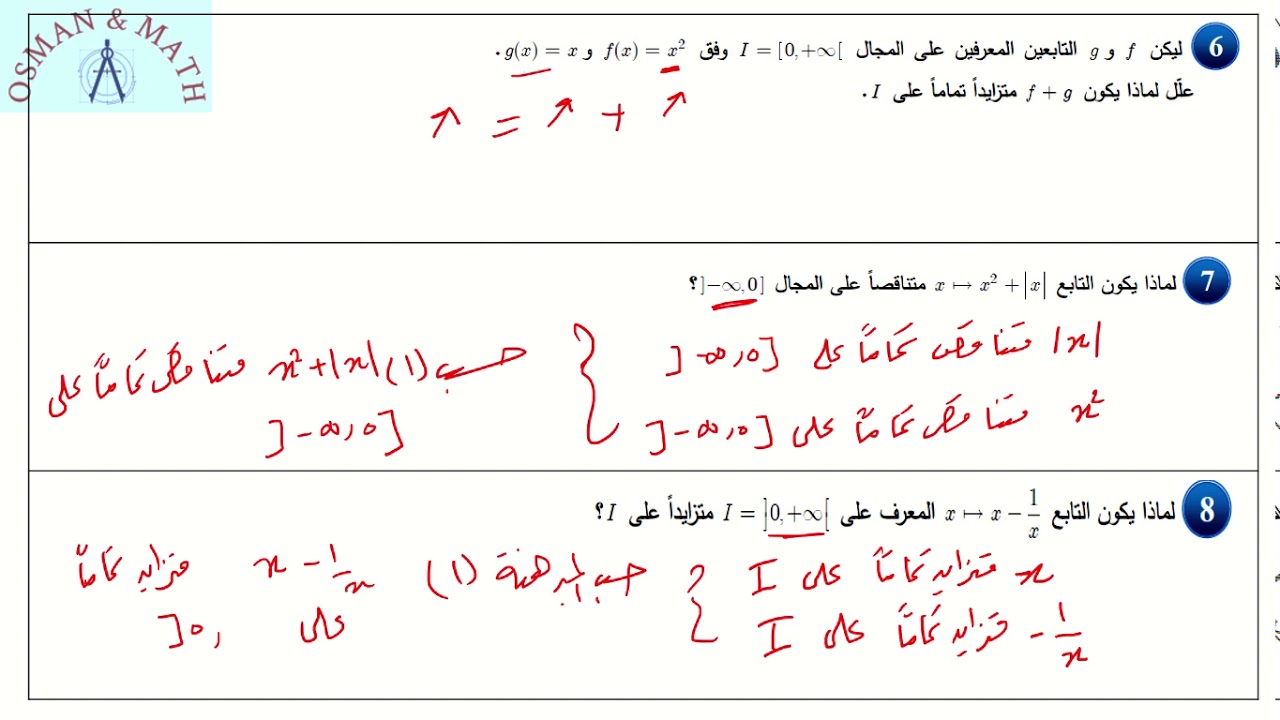 OSMAN & MATH
6 ليكن f و g التابعين المعرفين على المجال I = [0,+∞[ وفق f(x) = x² و g(x) = x .
علّل لماذا يكون f + g متزايداً تماماً على I .
↗ = ↗ + ↗
7 لماذا يكون التابع x ↦ x² + |x| متناقصاً على المجال ]−∞,0] ؟
|x| متناقص تماماً على ]-∞,0]
x² متناقص تماماً على ]-∞,0]
حسب (1) x²+|x| متناقص تماماً على
]-∞,0]
8 لماذا يكون التابع x ↦ x − 1/x المعرف على I = ]0,+∞[ متزايداً على I ؟
x متزايد تماماً على I
-1/x متزايد تماماً على I
حسب المبرهنة (1) x - 1/x متزايد تماماً
على ]0,